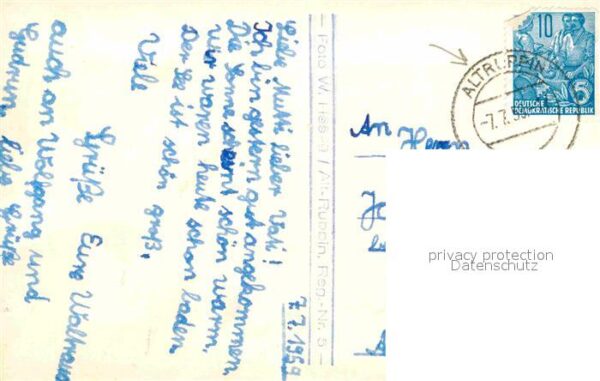 7.7.1959
Liebe Mutti, lieber Vati!
Ich bin gestern gut angekommen
Die Sonne scheint schön warm.
wir waren heute schon baden.
Der See ist schön groß.
Viele
Grüße Eure Waltraud
auch an Wolfgang und
Gudrun, liebe Grüße
Foto W. / Alt-Ruppin, Reg.-Nr. 5
10
5
DEUTSCHE
DEMOKRATISCHE REPUBLIK
ALTRUPPIN
-7.7.59
An
Herrn
privacy protection
Datenschutz